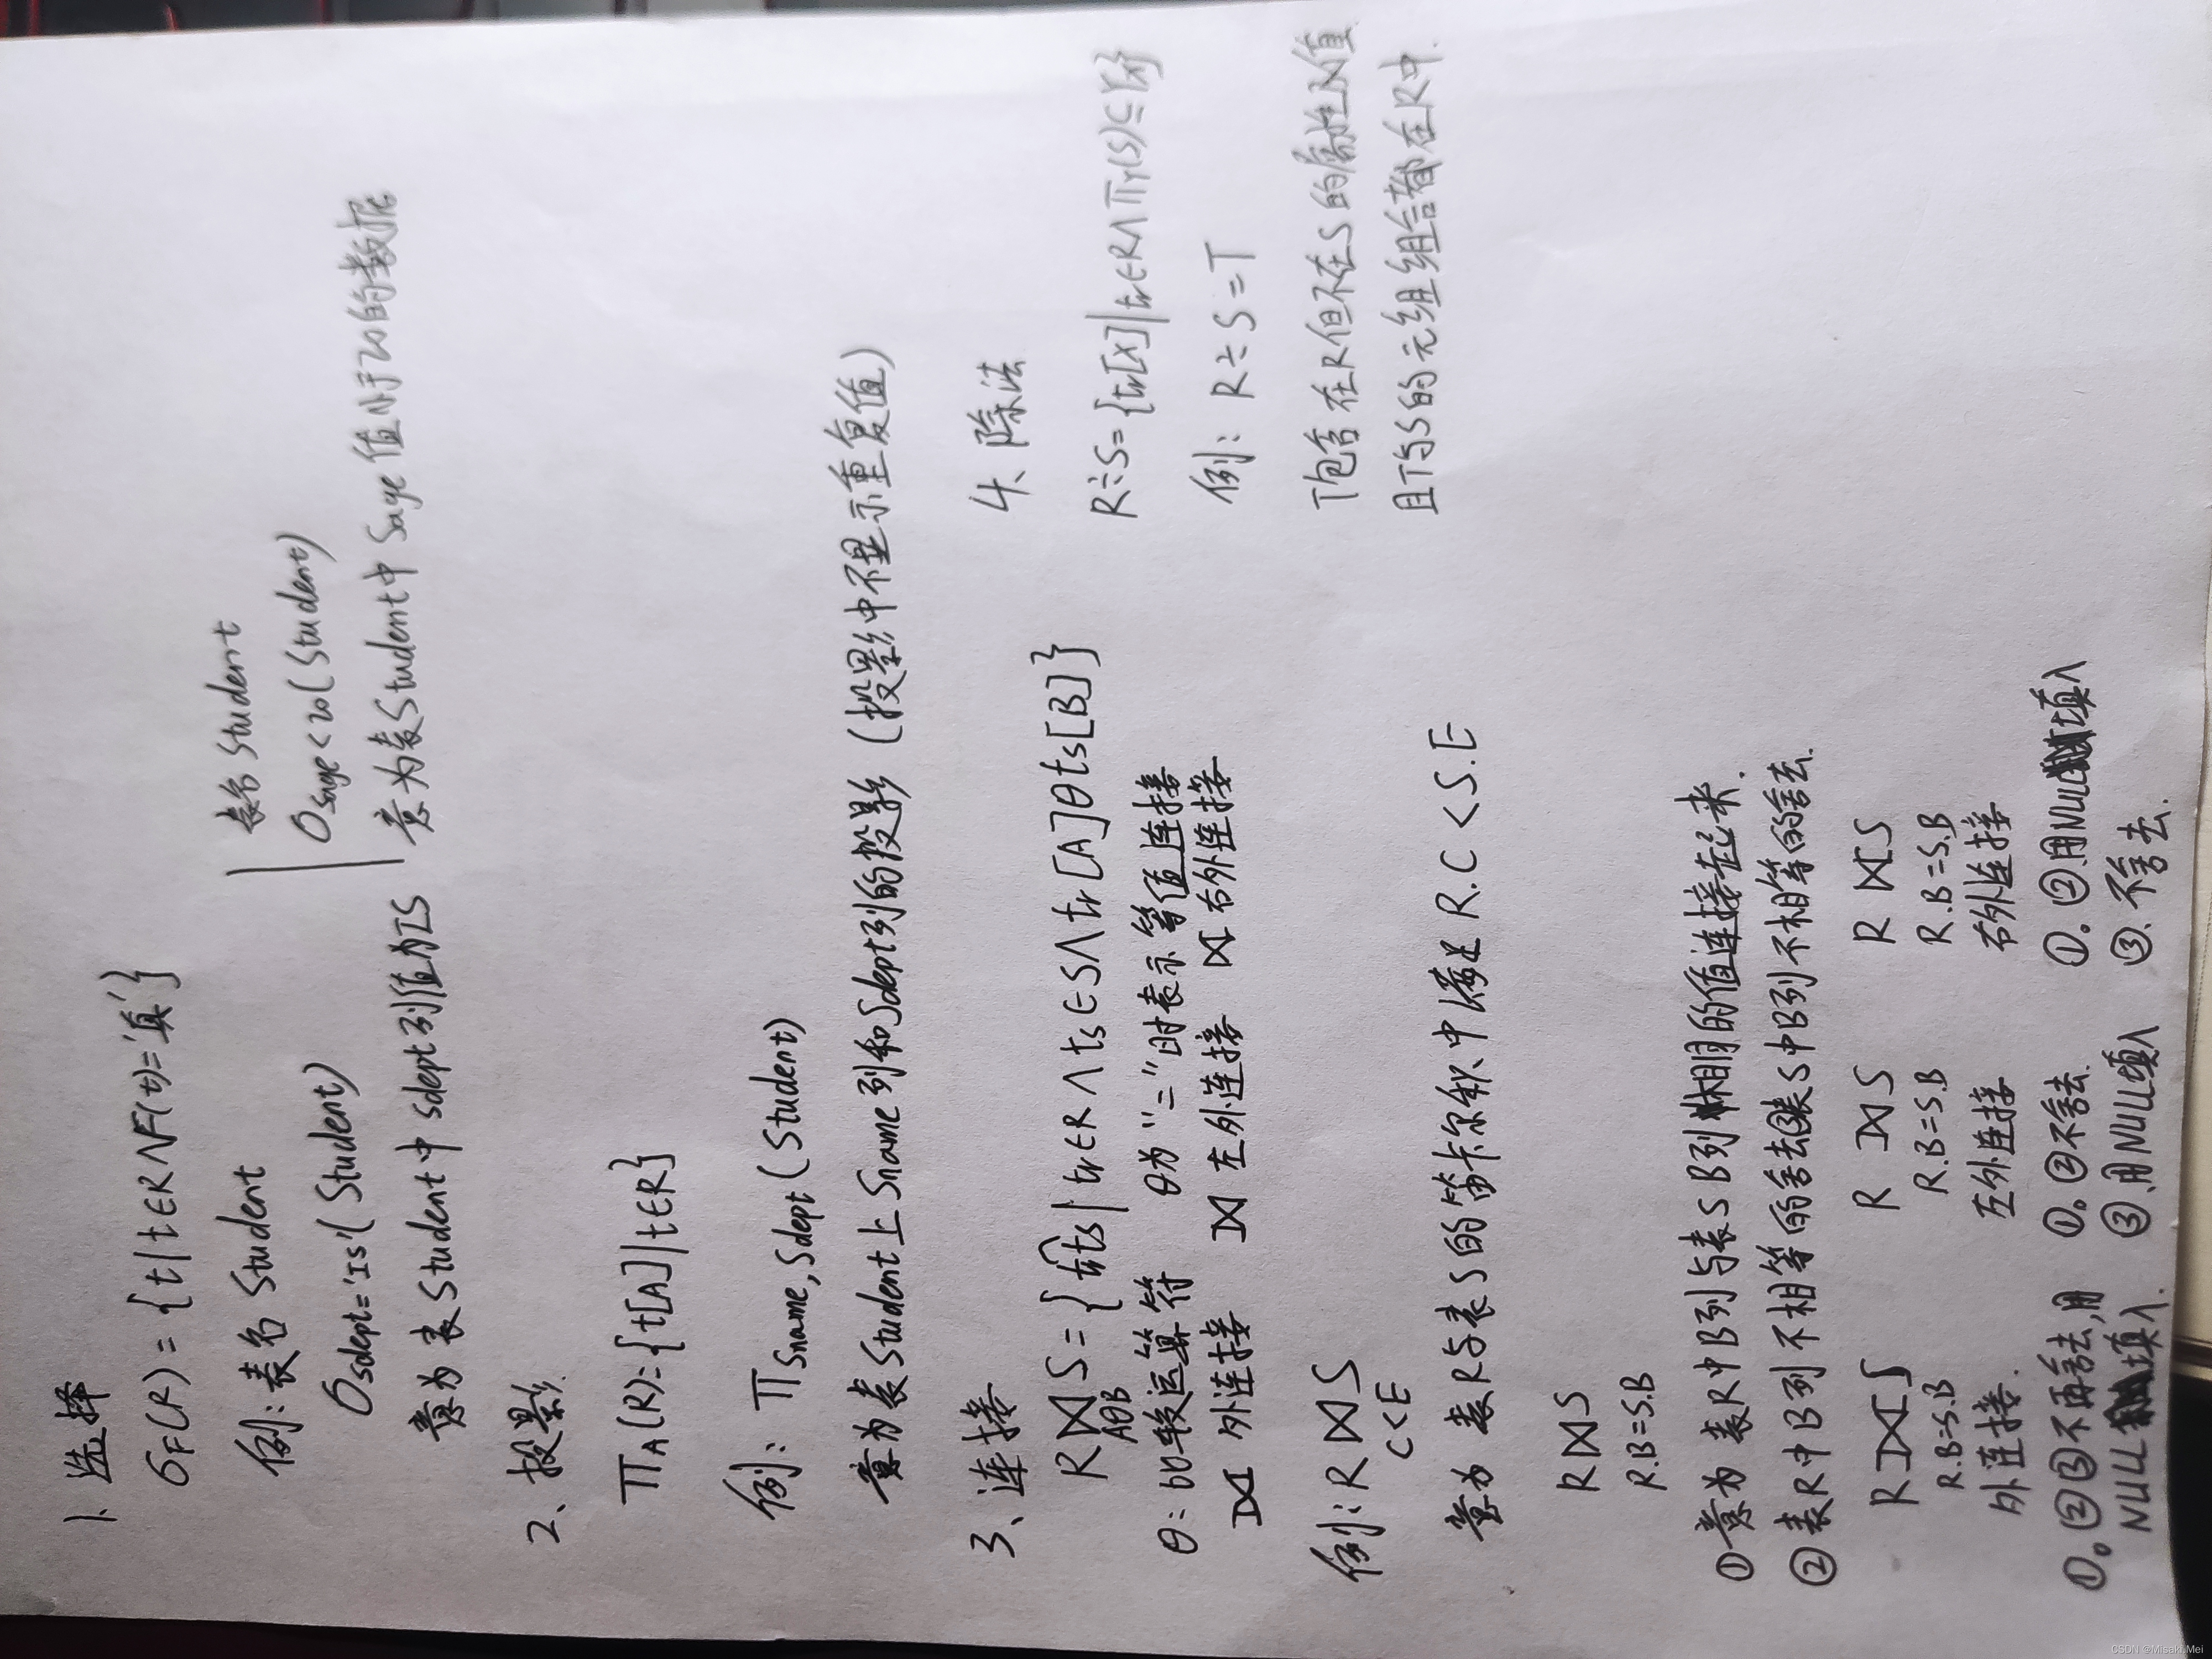 1、选择
σF(R) = {t|t∈R∧F(t)='真'}
例:表名 Student
σSdept='IS'(Student)
意为表Student中sdept列值为IS
表名 Student
σSage<20(Student)
意为表Student中Sage值小于20的数据
2、投影
∏A(R)={t[A]|t∈R}
例:∏Sname,Sdept(Student)
意为表Student上Sname列和Sdept列的投影(投影中不显示重复值)
3、连接
R⋈S={tr⌒ts|tr∈R∧ts∈S∧tr[A]θts[B]}
AθB
θ:比较运算符 θ为"="时表示等值连接
⟗ 外连接 ⟕ 左外连接 ⟖ 右外连接
例:R⋈S
C<E
意为 表R与表S的笛卡尔积中满足R.C<S.E
R⋈S
R.B=S.B
①意为表R中B列与表S B列相同的值连接起来.
②表R中B列不相等的舍去 表S中B列不相等的舍去.
R⟗S R⟕S R⟖S
R.B=S.B R.B=S.B R.B=S.B
外连接. 左外连接 右外连接
①。②③不再舍去,用 ①。②不舍去. ①。②用NULL填入
NULL填入. ③用NULL填入 ③.不舍去.
4、除法
R÷S={tr[X]|tr∈R∧∏Y(S)⊆Yx}
例:R÷S=T
T包含在R但不在S的属性及值
且T与S的元组组合都在R中.
CSDN @Misaki.Mei